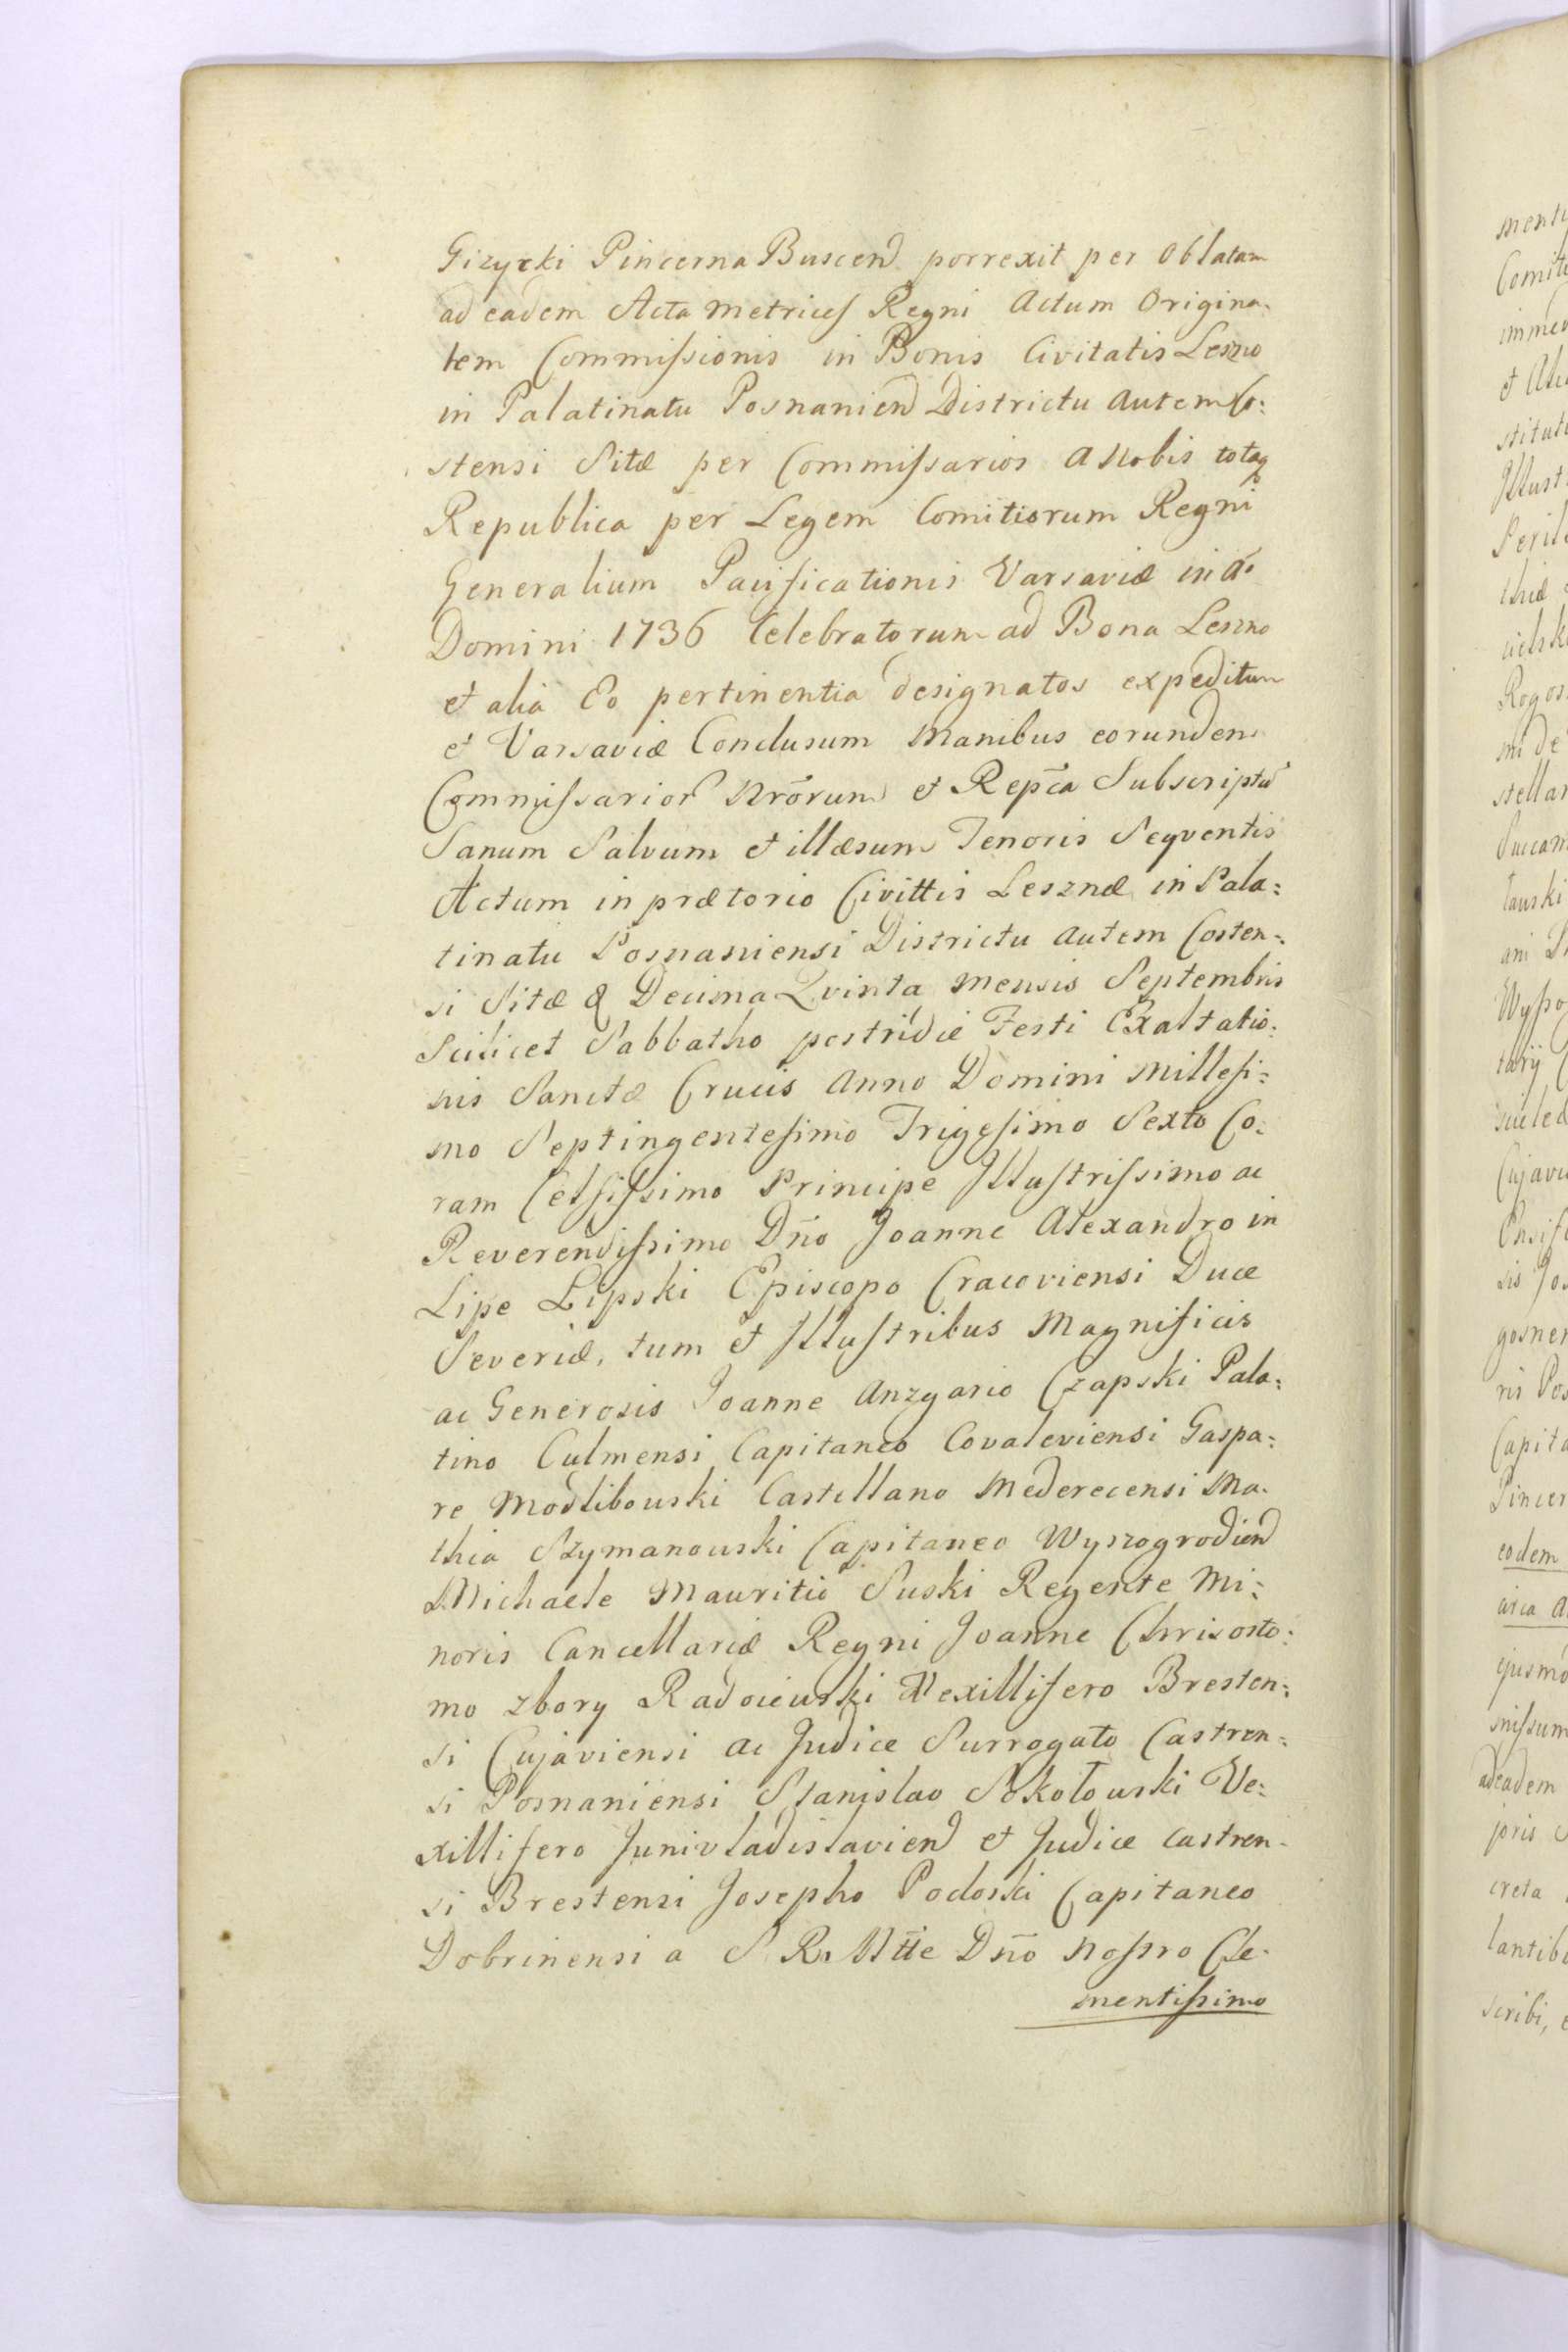 Gizycki Pincerna Buscend porrexit per Oblatam
ad eadem Acta Metrices Regni Actum Origina-
lem Commissionis in Bonis Civitatis Leszno
in Palatinatu Posnaniend Districtu autem Co:
stensi Sitæ per Commissarios a Nobis totaq
Republica per Legem Comitiorum Regni
Generalium Pacificationis Varsaviæ in ao
Domini 1736 Celebratorum ad Bona Leszno
et alia Eo pertinentia designatos expeditum
et Varsaviæ Conclusum Manibus eorundem
Commissarior Nrõrum et Repca Subscriptũ
Sanum Salvum et illæsum Tenoris Seqventis
Actum in prætorio Civittis Lesznæ in Pala:
tinatu Posnaniensi Districtu autem Costen:
si Sitæ Decima Qvinta Mensis Septembris
Scilicet Sabbatho postridie Festi Exaltatio:
nis Sanctæ Crucis Anno Domini Millesi:
mo Septingentesimo Trigesimo Sexto Co:
ram Celsissimo Principe Illustrissimo ac
Reverendissimo Dño Joanne Alexandro in
Lipe Lipski Episcopo Cracoviensi Duce
Severiæ, tum et Illustribus Magnificis
ac Generosis Joanne Anzgario Czapski Pala:
tino Culmensi Capitaneo Covaleviensi Gaspa:
re Modlibouski Castellano Mederecensi Ma-
thia Szymanouski Capitaneo Wyszogrodiend
Michaele Mauritio Suski Regente Mi:
noris Cancellariæ Regni Joanne Chrisosto:
mo zbory Radoieuski Vexillifero Bresten:
si Cujaviensi ac Judice Surrogato Castren:
si Posnaniensi Stanislao Sokołouski Ve:
xillifero Junivladislaviend et Judice Castren-
si Brestensi Josepho Podoski Capitaneo
Dobrinensi a S. R. Mtte Dño Nostro Cle-
mentissimo